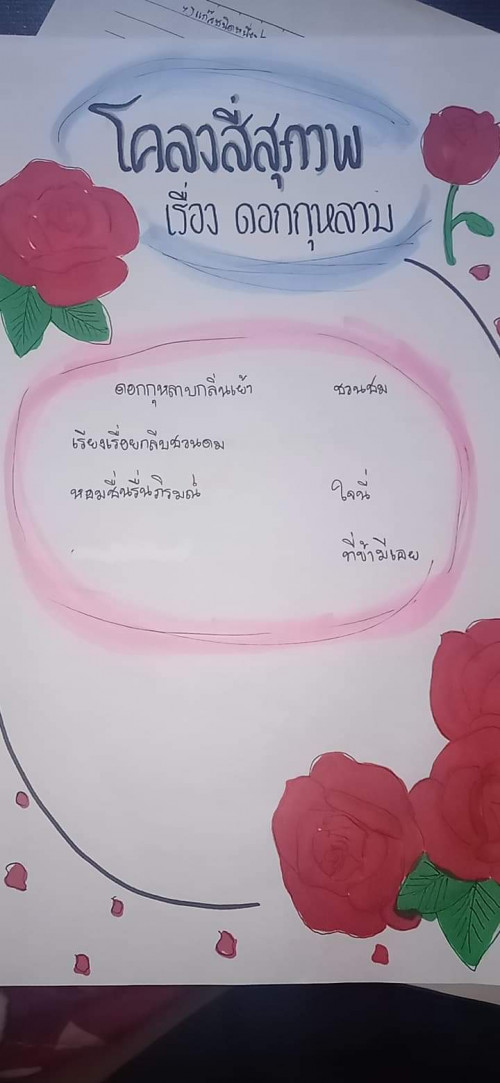 โคลงสี่สุภาพ
เรื่อง ดอกกุหลาบ
ดอกกุหลาบกลิ่นเย้า ชวนชม
เรียงเรื่อยกลีบชวนดม
หอมชื่นรื่นภิรมณ์ ใจนี่
ที่ข้ามีเฉย